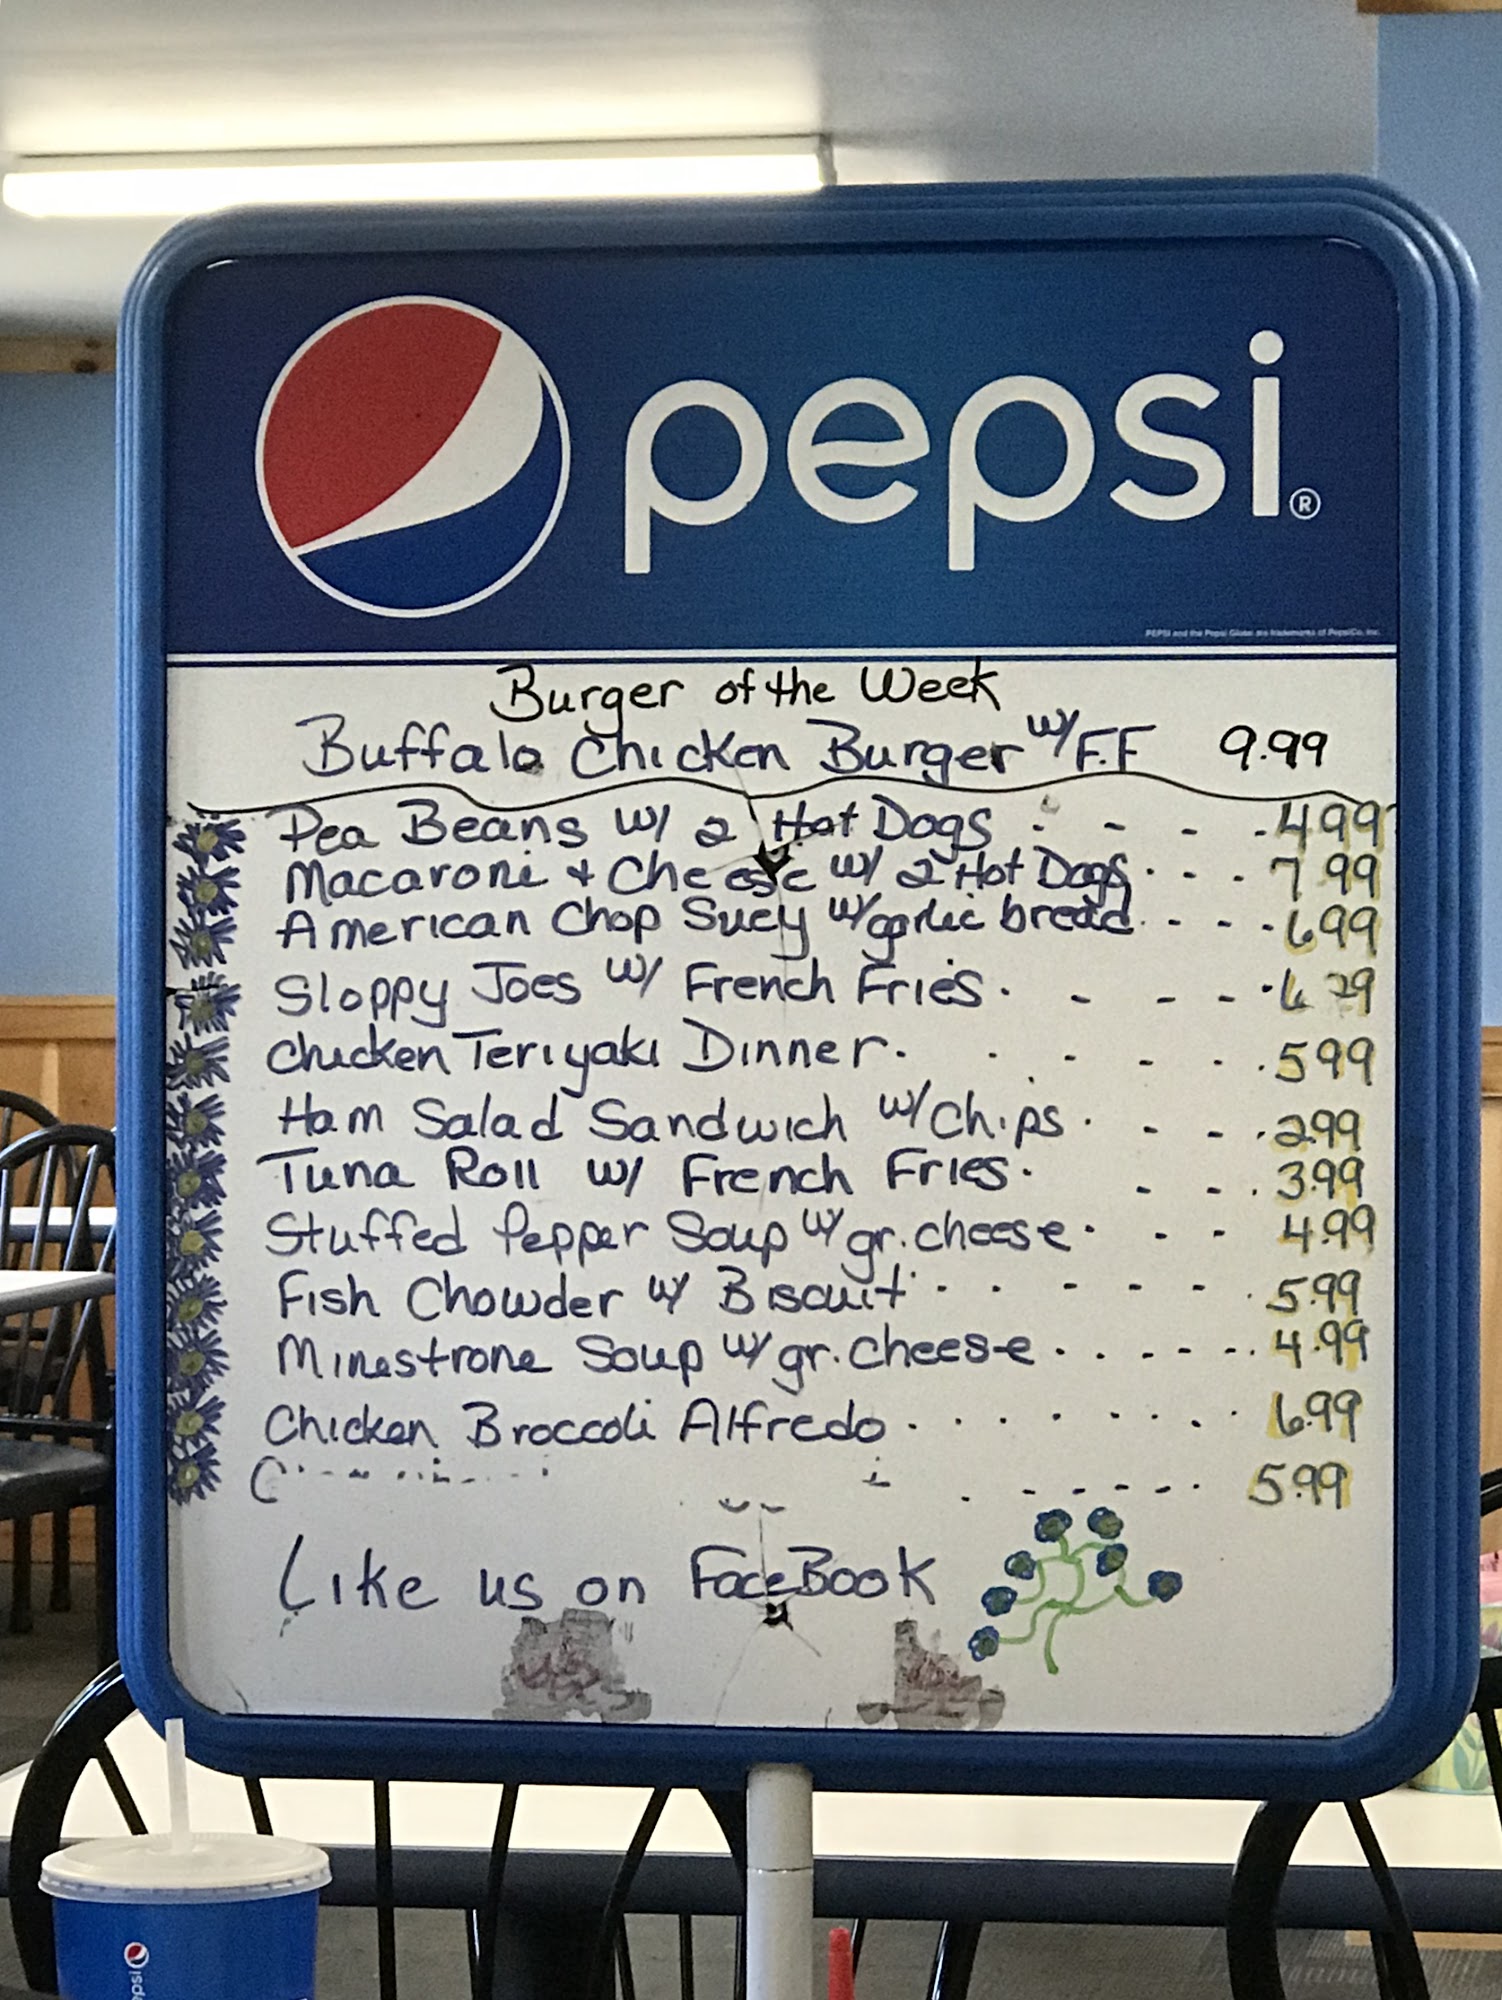 pepsi®
PEPSI and the Pepsi Globe are trademarks of PepsiCo, Inc.
Burger of the Week
Buffalo Chicken Burger w/ F.F 9.99
Pea Beans w/ 2 Hot Dogs . - - - 499
Macaroni + Cheese w/ 2 Hot Dogs . . - - 7 99
American Chop Suey w/garlic bread . - - - 699
Sloppy Joes w/ French Fries . - - - - 
Chicken Teriyaki Dinner . . - - - . 599
Ham Salad Sandwich w/Chips . - - - . 299
Tuna Roll w/ French Fries . - - . 3.99
Stuffed Pepper Soup w/ gr. cheese . - - 4.99
Fish Chowder w/ Biscuit . . - - - . 5.99
Minestrone Soup w/ gr. cheese . . . - - - . 4.99
Chicken Broccoli Alfredo . . . . . . . . . 6.99
5.99
Like us on FaceBook
pepsi